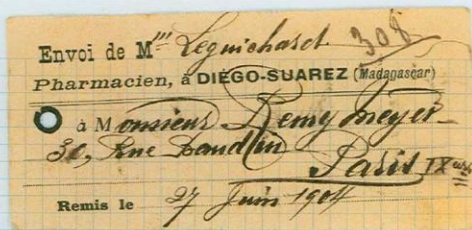 Envoi de Mr Leguichard 308
Pharmacien, à DIÉGO-SUAREZ (Madagascar)
à Monsieur Remy Meyer
30, Rue Baudin
Paris IX
Remis le 27 Juin 1904